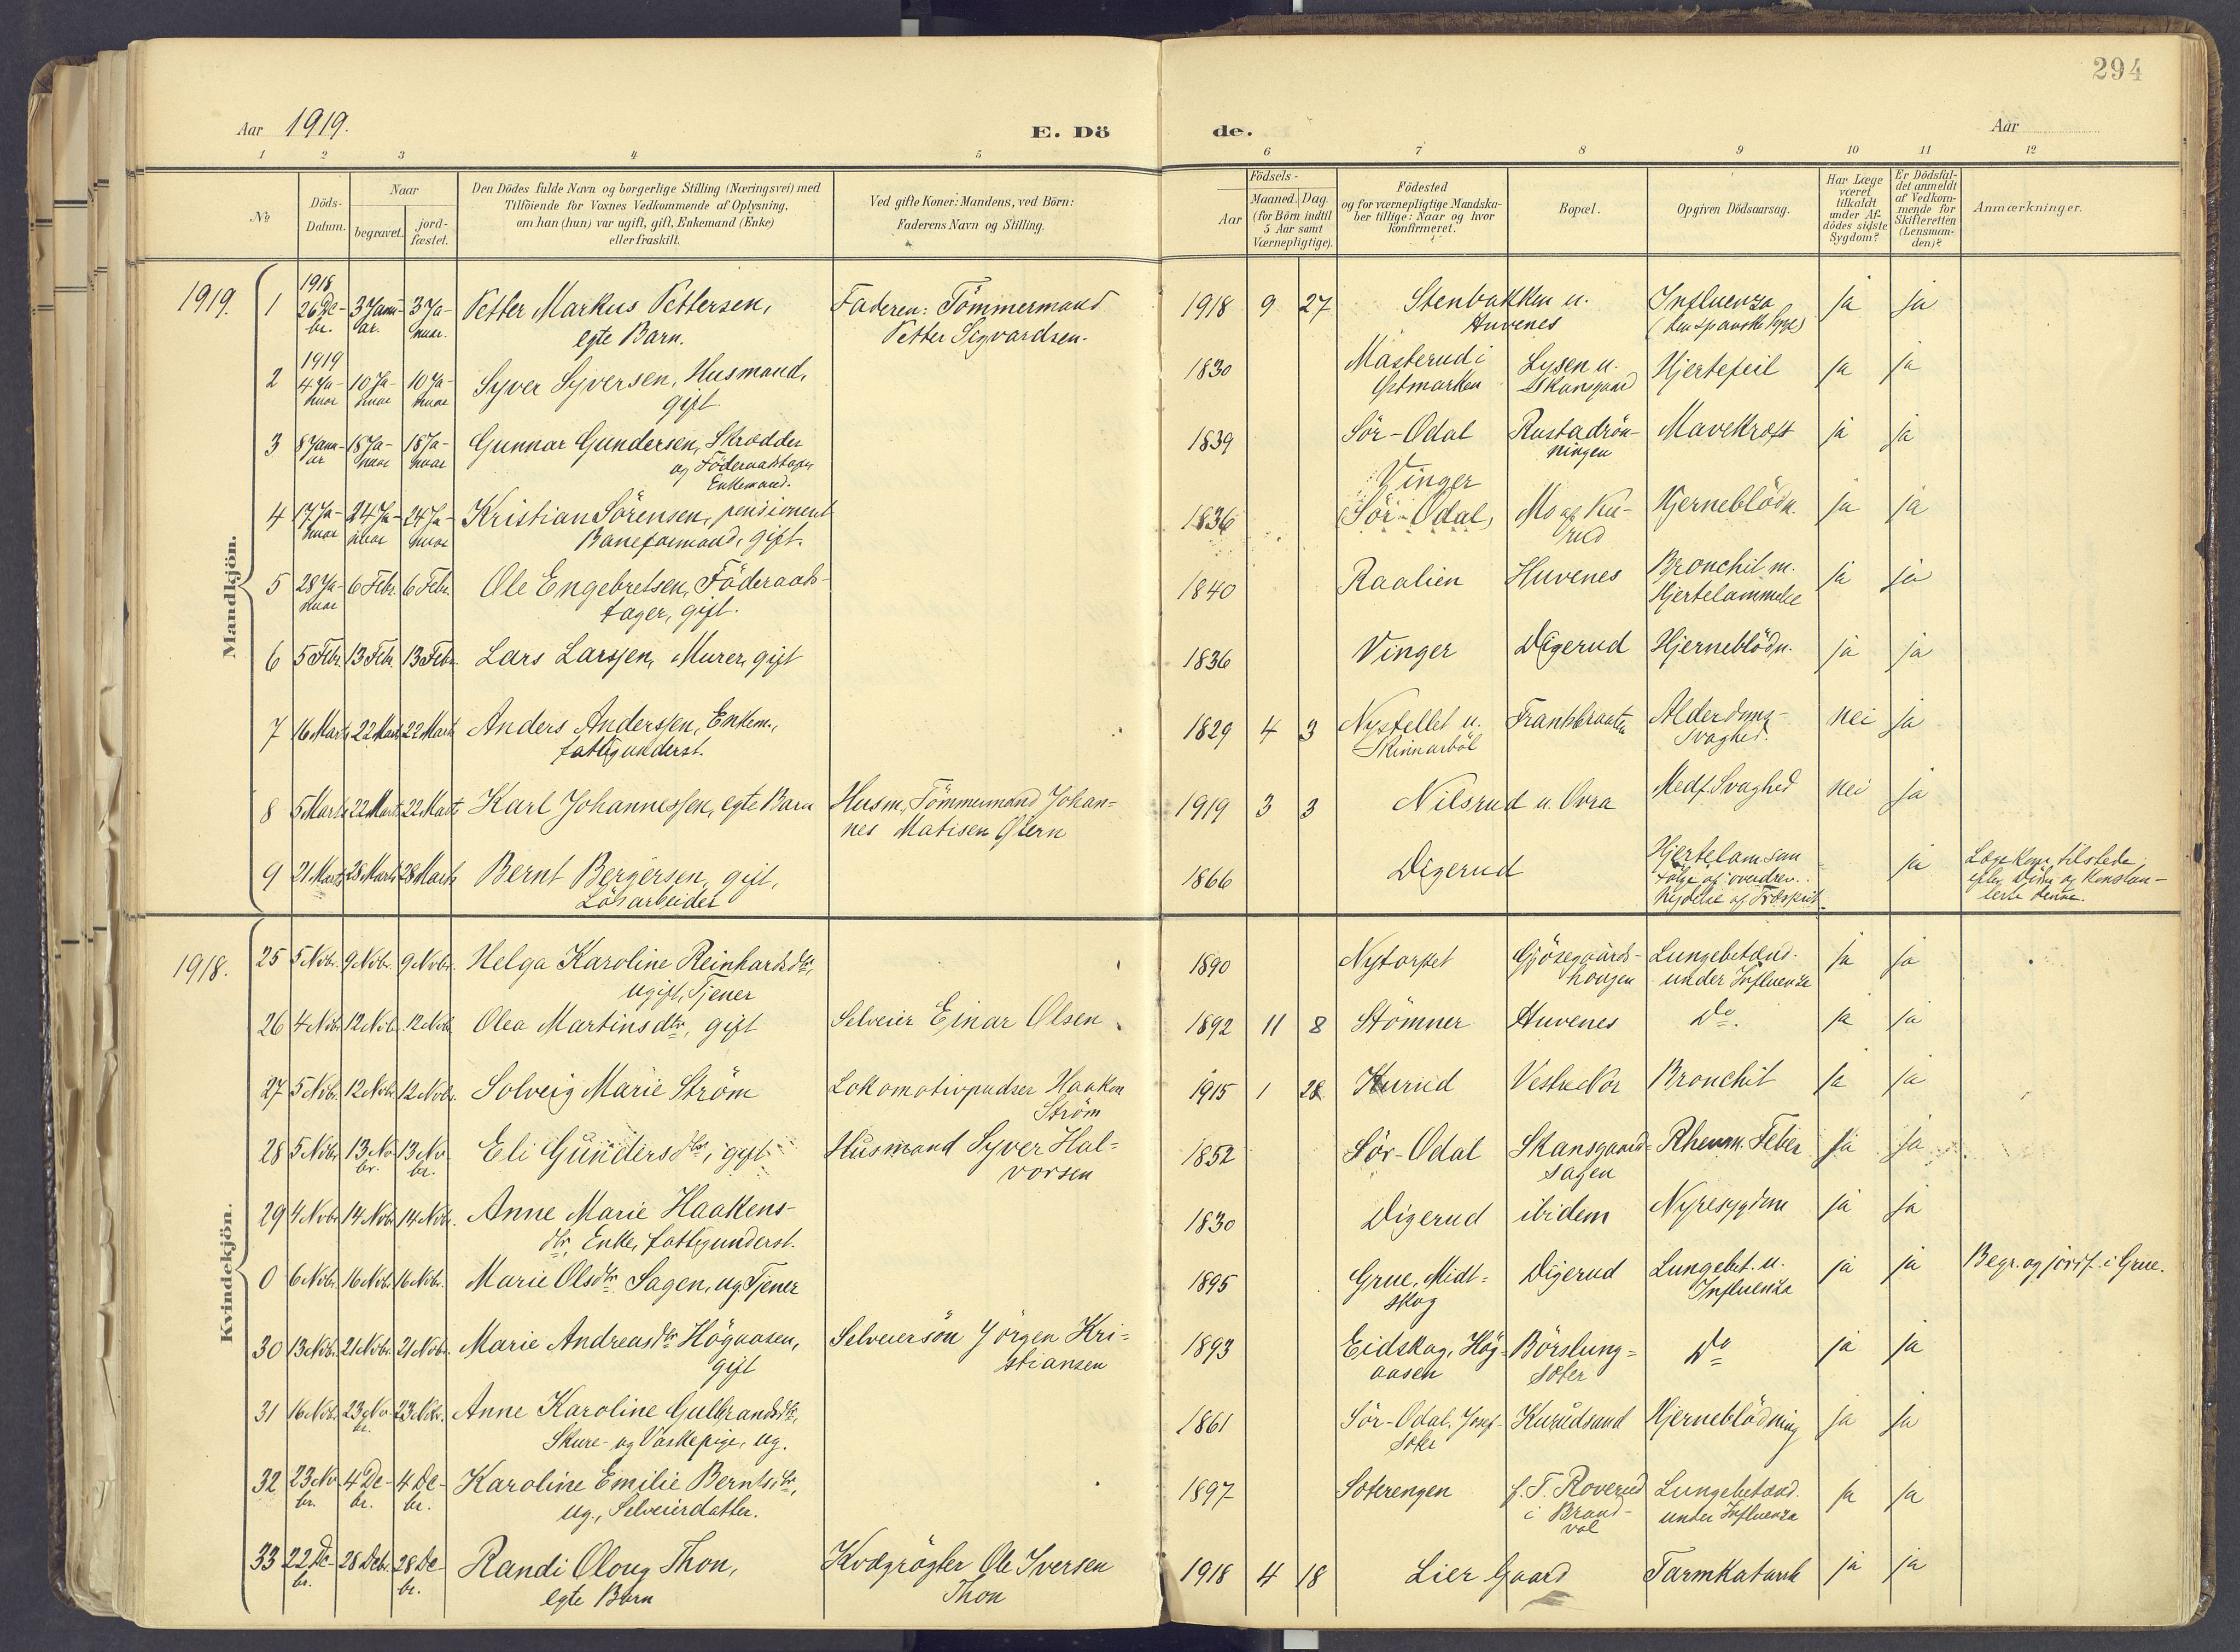 294
Aar 1919.
E. Dö
de.
Aar
1 2 3 4 5 6 7 8 9 10 11 12
No
Döds-Datum.
Naar
begravet.
jord-fæstet.
Den Dödes fulde Navn og borgerlige Stilling (Næringsvei) med
Tilföiende for Voxnes Vedkommende af Oplysning,
om han (hun) var ugift, gift, Enkemand (Enke)
eller fraskilt.
Ved gifte Koner: Mandens, ved Börn:
Faderens Navn og Stilling.
Födsels-
Aar
Maaned. Dag.
(for Börn indtil
5 Aar samt
Værnepligtige).
Födested
og for værnepligtige Mandska-
ber tillige: Naar og hvor
konfirmeret.
Bopæl.
Opgiven Dödsaarsag.
Har Læge
været
tilkaldt
under Af-
dödes sidste
Sygdom?
Er Dödsfal-
det anmeldt
af Vedkom-
mende for
Skifteretten
(Lensman-
den)?
Anmærkninger.
Mandkjön.
1919.
1 1918 26 De-br. 3 Janu-ar. 3 Ja-nuar. Petter Markus Pettersen, egte Barn. Faderen: Tömmermand Petter Sigvardsen. 1918 9 27 Stenbakken u. Huvenes Influenza (den spanske Syge) ja ja
2 1919 4 Ja-nuar 10 Ja-nuar 10 Ja-nuar Syver Syversen, Husmand, gift. 1830 Masterud i Østmarken Lysen u. Skansgaard Hjertefeil ja ja
3 8 Janu-ar 18 Ja-nuar 18 Ja-nuar Gunnar Gundersen, Skrædder og Föderaadstager Enkemand. 1839 Sör-Odal Rustadrön-ningen Mavekræft ja ja
4 17 Ja-nuar 24 Ja-nuar 24 Ja-nuar Kristian Sörensen, pensioneret Baneformand, gift. 1836 Vinger (Sör-Odal) Mo og Ku-rud Hjerneblödn. ja ja
5 28 Ja-nuar 6 Febr. 6 Febr. Ole Engebretsen, Föderaads-tager, gift. 1840 Raalien Huvenes Bronchit m. Hjertelammelse ja ja
6 5 Febr. 13 Febr. 13 Febr. Lars Larssen, Murer, gift 1836 Vinger Digerud Hjerneblödn. ja ja
7 16 Marts 22 Marts 22 Marts Anders Anderssen, Enkem., fattigunderst. 1829 4 3 Nystellet u. Skinnarböl Frankbraaten Alderdoms-svaghed. nei ja
8 5 Marts 22 Marts 22 Marts Karl Johannessen, egte Barn Husm., Tömmermand Johan-nes Matisen Östern 1919 3 3 Nilsrud u. Ovra Medf. Svaghed nei ja
9 21 Marts 28 Marts 28 Marts Bernt Bergersen, gift, Lösarbeider 1866 Digerud Hjertelam. som Fölge af overdrev. Nydelse af Træsprit. ja Læge kom tilstede efter Döden og konsta-terte denne.
Kvindekjön.
1918.
25 5 Nobr. 9 Nobr. 9 Nobr. Helga Karoline Reinhardsdtr, ugift, Tjener 1890 Nytorpet Gjösegaards-haugen Lungebetænd. under Influenza ja ja
26 4 Nobr. 12 Nobr. 12 Nobr. Olea Martinsdtr, gift Selveier Einar Olsen 1892 11 8 Stömner Huvenes Do. ja ja
27 5 Nobr. 12 Nobr. 12 Nobr. Solveig Marie Ström Lokomotivpudser Haakon Ström 1915 1 28 Kurud Vestre Nor Bronchit ja ja
28 5 Nobr. 13 No-br. 13 No-br. Eli Gundersdtr, gift Husmand Syver Hal-vorsen 1852 Sör-Odal Skansgaard-sagen Rheum. Feber ja ja
29 4 Nobr. 14 Nobr. 14 Nobr. Anne Marie Haakens-dtr, Enke, fattigunderst. 1830 Digerud ibidem Nyresygdom ja ja
0 6 Nobr. 16 Nobr. 16 Nobr. Marie Olsdtr Sagen, ug. Tjener 1895 Grue, Midt-skog Digerud Lungebet. u. Influenza ja ja Begr. og jordf. i Grue.
30 13 Nobr. 21 Nobr. 21 Nobr. Marie Andreasdtr Högaasen, gift Selveiersön Jörgen Kri-stiansen 1893 Eidskog, Hög-aasen Börslung-sæter Do ja ja
31 16 Nobr. 23 No-br. 23 Nobr. Anne Karoline Gulbrandsdtr, Skure- og Vaskepige, ug. 1861 Sör-Odal, Kurudsand Hjerneblödning ja ja
32 23 No-br. 4 De-br. 4 De-br. Karoline Emilie Berntsdtr, ug., Selveierdatter. 1897 Sæterengen f. T. Roverud i Brand-val Lungebetænd. under Influenza ja ja
33 22 De-br. 28 Debr. 28 De-br. Randi Oloug Thon, egte Barn Kvægrögter Ole Iversen Thon 1918 4 18 Lier Gaard Tarmkatarrh ja ja